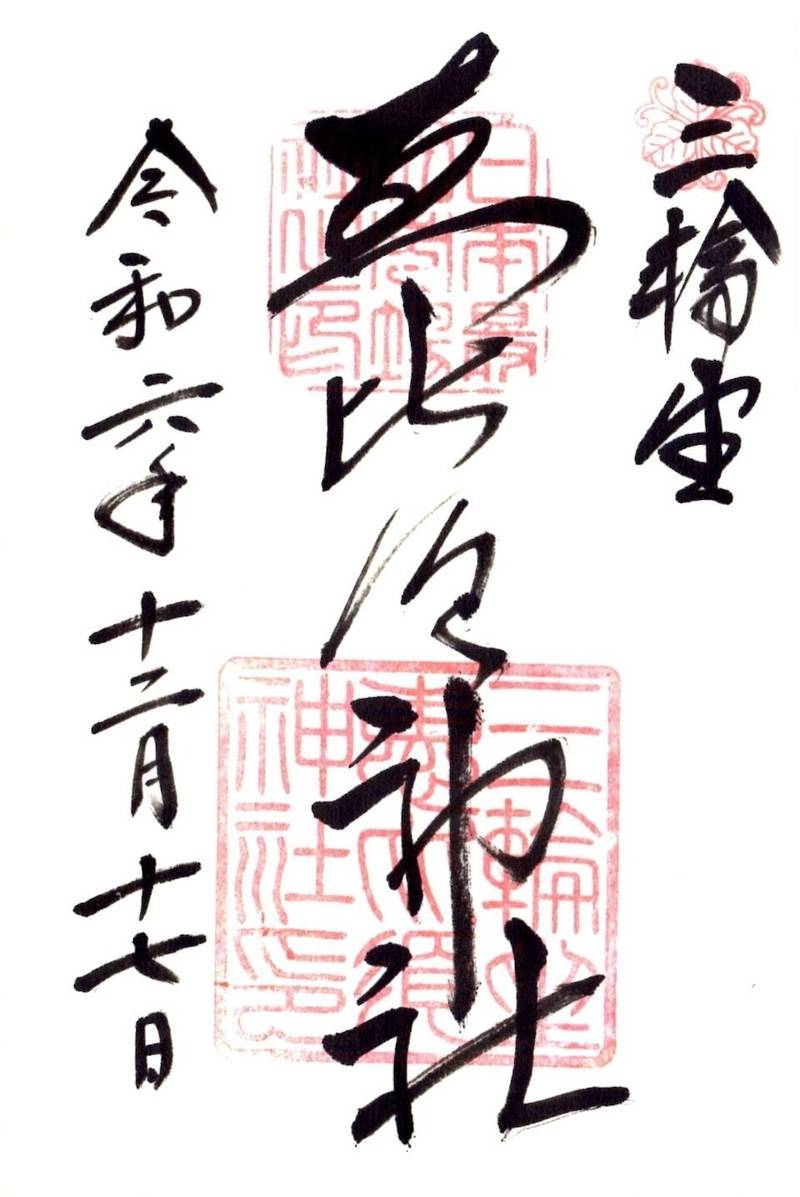 三輪坐
恵比須神社
令和六年十二月十七日
日本最
三輪坐
恵比須
神社印